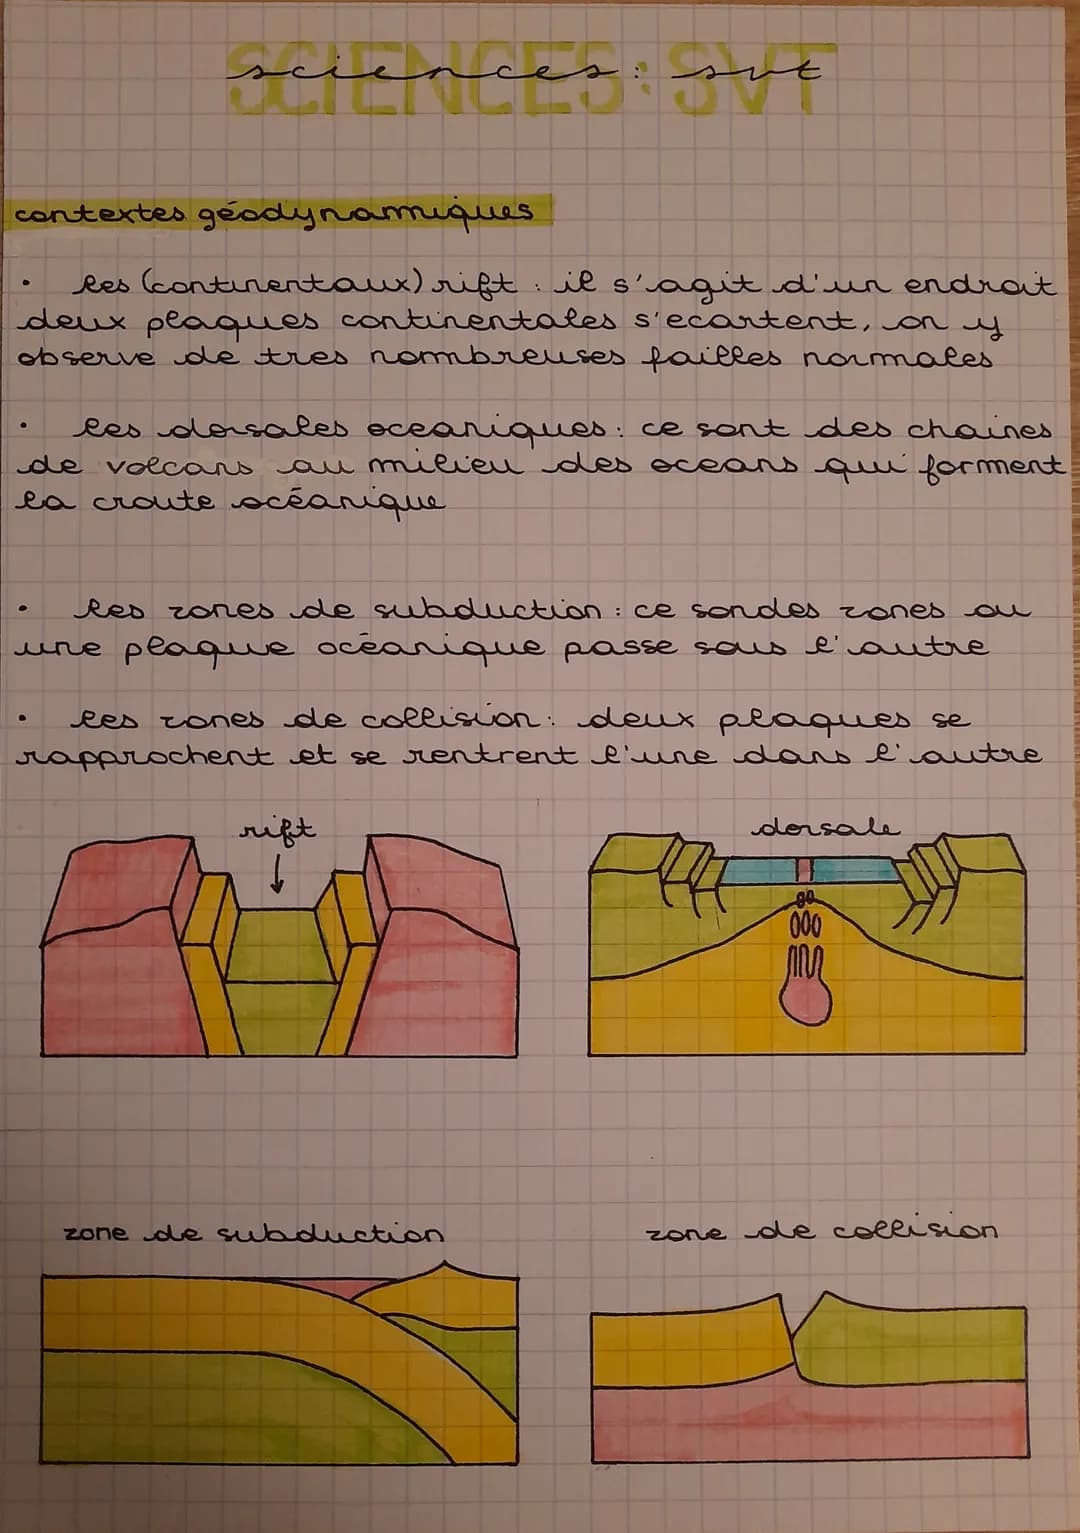 SCIENCES: SVT
sciences: svt
contextes géodynamiques
• les (continentaux) rift : il s'agit d'un endroit
deux plaques continentales s'ecartent, on y
observe de tres nombreuses failles normales
• les dorsales oceaniques : ce sont des chaines
de volcans au milieu des oceans qui forment
la croute océanique
• les zones de subduction : ce sondes zones ou
une plaque océanique passe sous l'autre
• les zones de collision : deux plaques se
rapprochent et se rentrent l'une dans l'autre
rift
dorsale
zone de subduction
zone de collision